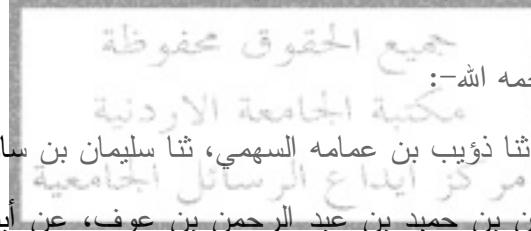 جميع الحقوق محفوظة
حمه الله-:
مكتبة الجامعة الاردنية
ثنا ذؤيب بن عمامه السهمي، ثنا سليمان بن سا
مركز ايداع الرسائل الجامعية
ن بن حميد بن عبد الرحمن بن عوف، عن أبي